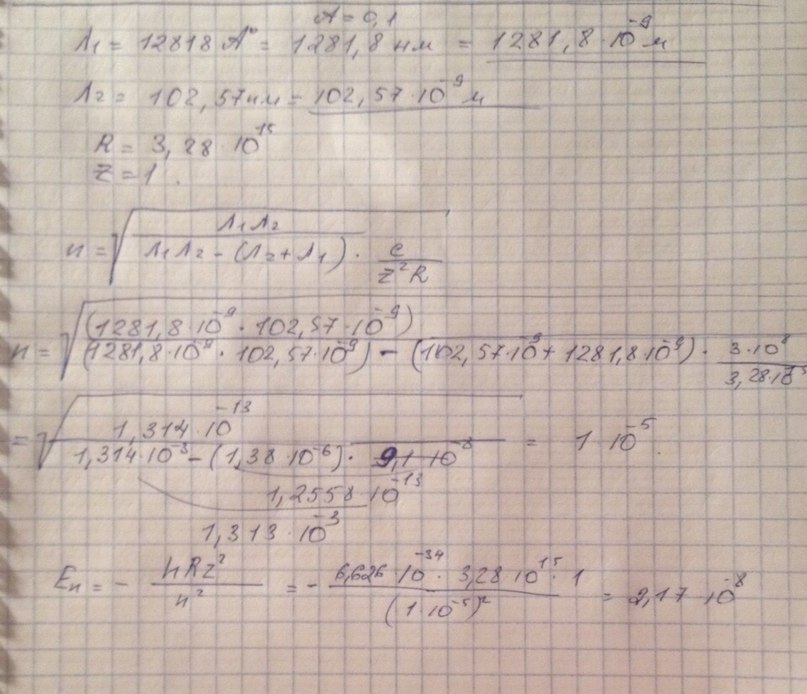 A = 0,1
λ1 = 12818 A° = 1281,8 нм = 1281,8·10⁻⁹ м
λ2 = 102,57 нм = 102,57·10⁻⁹ м
R = 3,28 10¹⁵
Z = 1.
n = √ λ1 λ2 / λ1 λ2 - (λ2 + λ1) · c / z²R
n = √ (1281,8·10⁻⁹ · 102,57·10⁻⁹) / (1281,8·10⁻⁹ · 102,57·10⁻⁹) - (102,57·10⁻⁹ + 1281,8·10⁻⁹) · 3·10⁸ / 3,28·10¹⁵
= √ 1,314·10⁻¹³ / 1,314·10⁻³ - (1,38·10⁻⁶) · 9,1·10⁻⁸ = 1 10⁻⁵.
1,2558 10⁻¹³
1,313·10⁻³
En = - hRz² / n² = - 6,626·10⁻³⁴ · 3,28·10¹⁵ · 1 / (1·10⁻⁵)² = 2,17·10⁻⁸